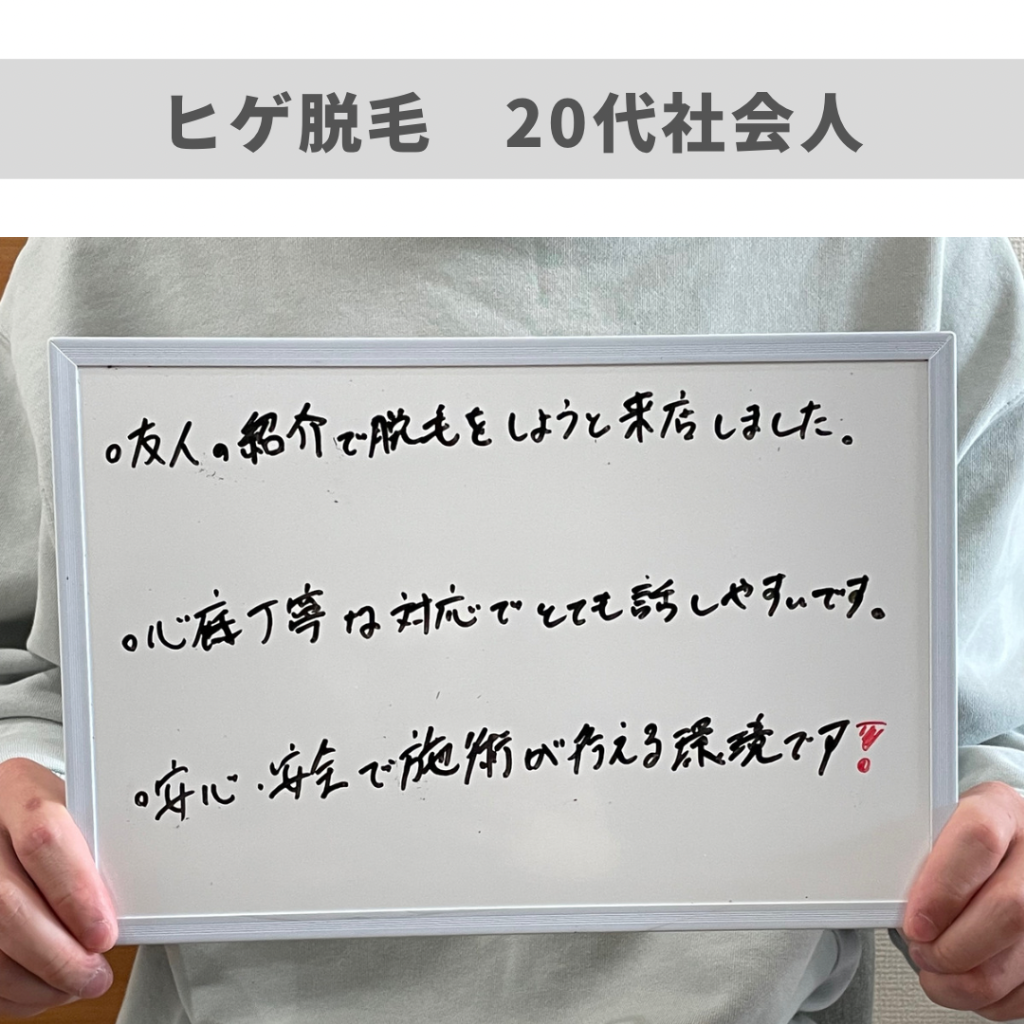 ヒゲ脱毛　20代社会人
○友人の紹介で脱毛をしようと来店しました。
○心底丁寧な対応でとても話しやすいです。
○安心・安全で施術が行える環境です!